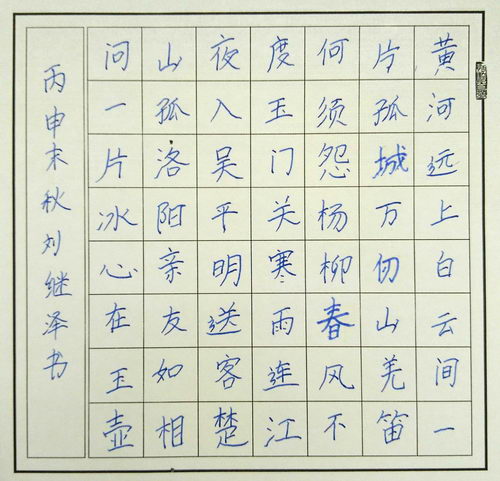 黄河远上白云间一
片孤城万仞山羌笛
何须怨杨柳春风不
度玉门关寒雨连江
夜入吴平明送客楚
山孤洛阳亲友如相
问一片冰心在玉壶
丙申末秋刘继泽书